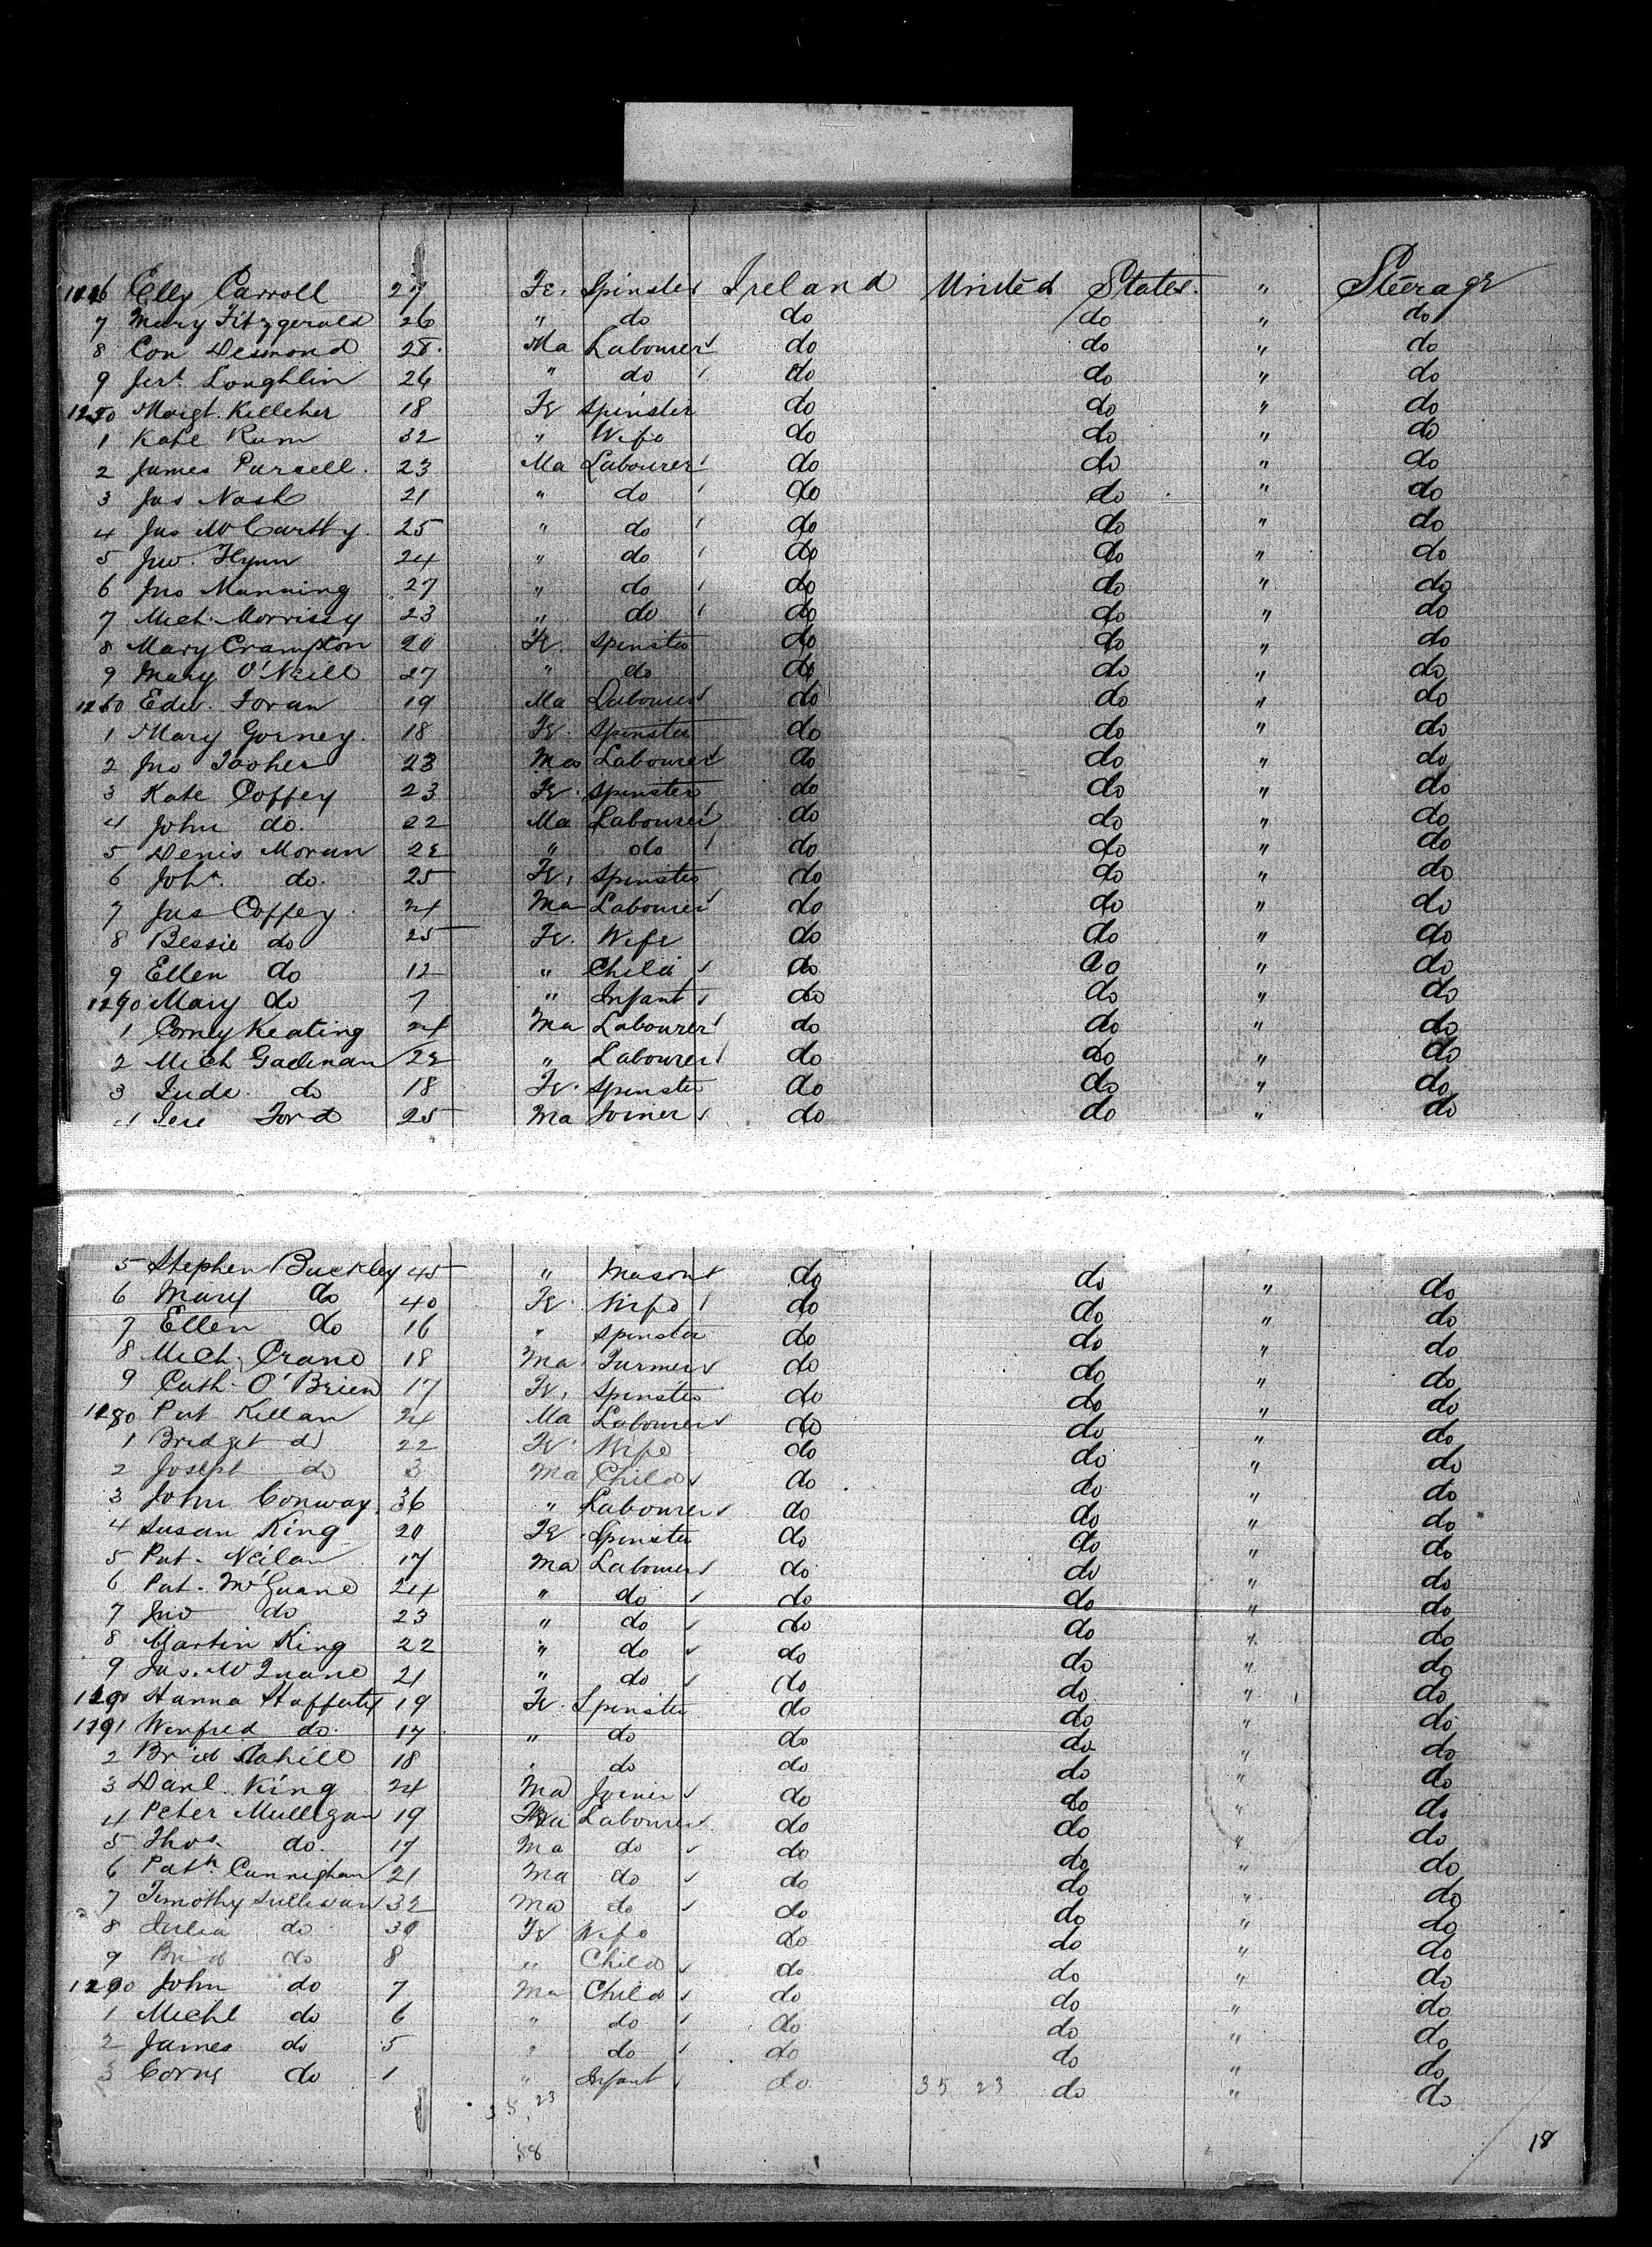 1246 Elly Carroll 27 Fe. Spinster Ireland United States " Steerage
7 Mary Fitzgerald 26 " do do do " do
8 Con Desmond 28 Ma Labourer do do " do
9 Jert. Loughlin 26 " do do do " do
1250 Margt. Kelleher 18 Fe Spinster do do " do
1 Kate 32 " Wife do do " do
2 James Pursell 23 Ma Labourer do do " do
3 Jas Nash 21 " do do do " do
4 Jas McCarthy 25 " do do do " do
5 Jno. Flynn 24 " do do do " do
6 Jno Manning 27 " do do do " do
7 Mich. Morrissy 23 " do do do " do
8 Mary Crampton 20 Fe. Spinster do do " do
9 Mary O'Neill 27 " do do do " do
1260 Edw. Foran 19 Ma Labourer do do " do
1 Mary Gorney 18 Fe. Spinster do do " do
2 Jno Tooher 23 Ma Labourer do do " do
3 Kate Coffey 23 Fe. Spinster do do " do
4 John do. 22 Ma Labourer do do " do
5 Denis Moran 22 " do do do " do
6 Joha. do. 25 Fe. Spinster do do " do
7 Jas Coffey 24 Ma Labourer do do " do
8 Bessie do 25 Fe. Wife do do " do
9 Ellen do 12 " Child do do " do
1270 Mary do 7 " Infant do do " do
1 Corney Keating 24 Ma Labourer do do " do
2 Mich 22 " Labourer do do " do
3 Jude do 18 Fe. Spinster do do " do
4 Jere Ford 25 Ma Joiner do do " do
5 Stephen Buckley 45 " Mason do do " do
6 Mary do 40 Fe. Wife do do " do
7 Ellen do 16 " Spinster do do " do
8 Mich. Crane 18 Ma Farmer do do " do
9 Cath. O'Brien 17 Fe. Spinster do do " do
1280 Pat Killan 24 Ma Labourer do do " do
1 Bridget do 22 Fe. Wife do do " do
2 Joseph do 3 Ma Child do do " do
3 John Conway 36 " Labourer do do " do
4 Susan King 20 Fe. Spinster do do " do
5 Pat. Neilan 17 Ma Labourer do do " do
6 Pat. McGuane 24 " do do do " do
7 Jno do 23 " do do do " do
8 Martin King 22 " do do do " do
9 Jas. McGuane 21 " do do do " do
1290 Hanna Hafferty 19 Fe. Spinster do do " do
1291 Winfred do. 17 " do do do " do
2 Brid Cahill 18 " do do do " do
3 Danl. King 24 Ma Joiner do do " do
4 Peter Mulligan 19 Ma Labourer do do " do
5 Thos do. 17 Ma do do do " do
6 Patk. Cunnighan 21 Ma do do do " do
7 Timothy Sullivan 32 Ma do do do " do
8 Julia do 30 Fe Wife do do " do
9 Brid do 8 " Child do do " do
1290 John do 7 Ma Child do do " do
1 Michl do 6 " do do do " do
2 James do 5 " do do do " do
3 Corns do 1 " Infant do 35 23 do " do
35 23
58
18